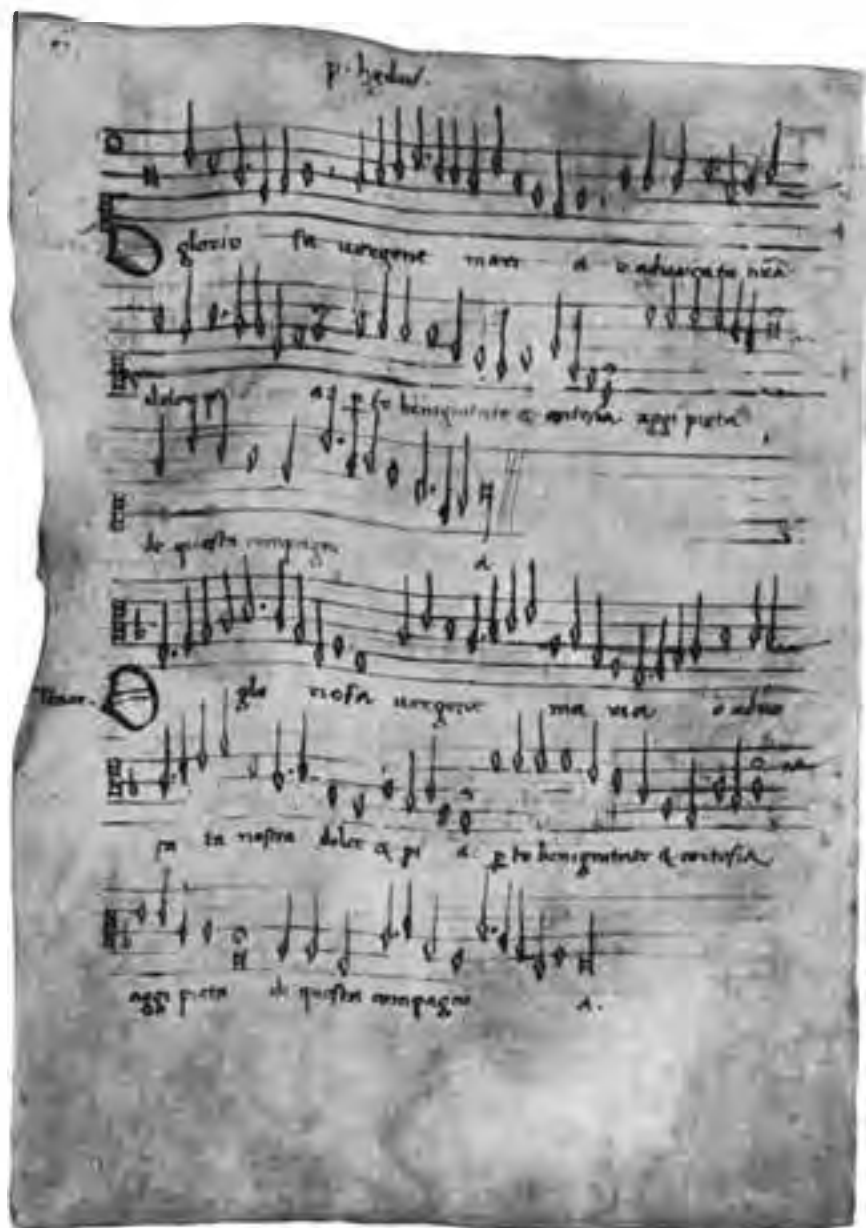 p. hedus.
O glorio sa uergene mari a o aduocata nrã
dolce & pi a p to benignitate & cortesia aggi pieta
de questa compagni a
Tenor. O glo riosa uergene ma ria o aduo
ca ta nostra dolce & pi a. p to benignitate & cortesia
aggi pieta di questa compagni a.